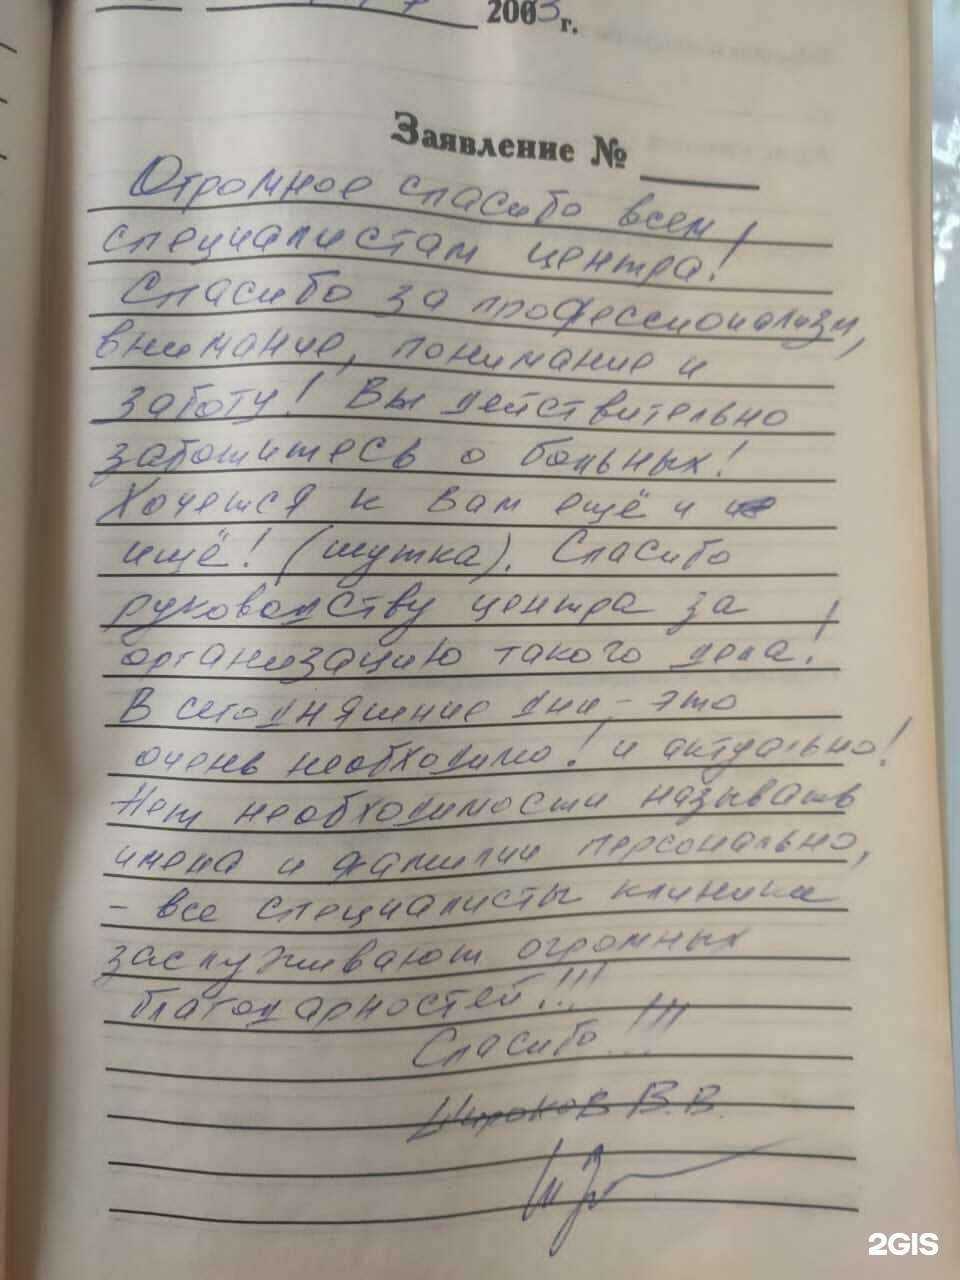 2003 г.
Заявление №
Огромное спасибо всем
специалистам центра!
Спасибо за профессионализм,
внимание, понимание и
заботу! Вы действительно
заботитесь о больных!
Хочется к Вам ещё и
ищё! (шутка). Спасибо
руководству центра за
организацию такого дела!
В сегодняшние дни - это
очень необходимо! и актуально!
Нет необходимости называть
имена и фамилии персонально,
- все специалисты клиники
заслуживают огромных
благодарностей!!!
Спасибо!!!
Широков В.В.
2GIS